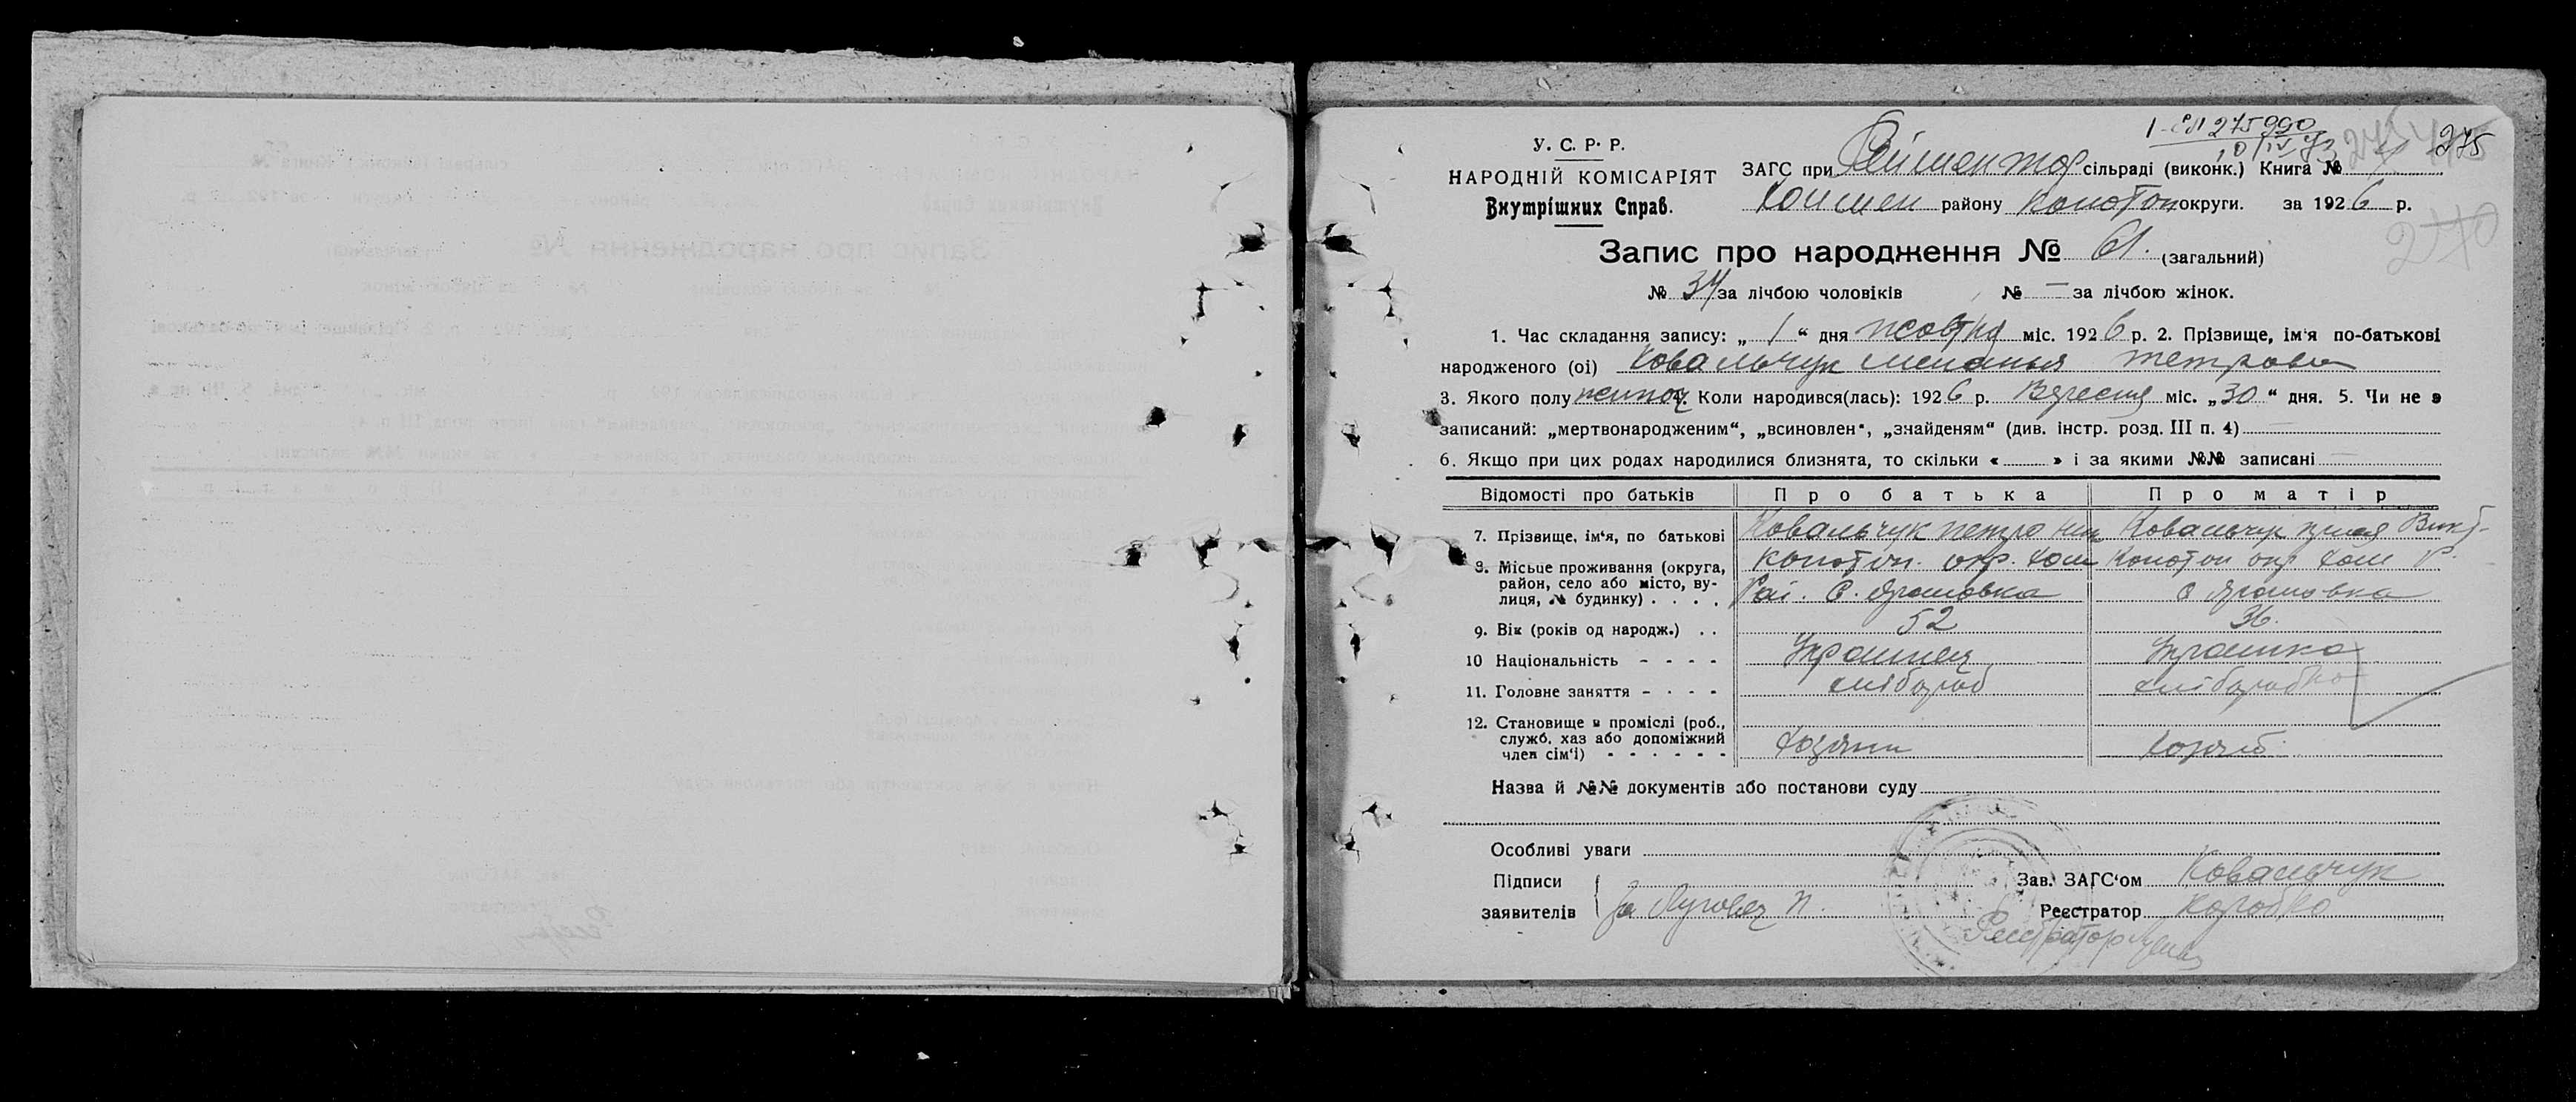 1-ЕЛ 275990
10/IV 73 275
У. С. Р. Р.
НАРОДНІЙ КОМІСАРІЯТ
Внутрішних Справ.
ЗАГС при сільраді (виконк.) Книга №
району Конотоп округи. за 1926 р.
270
Запис про народження № 61. (загальний)
№ 34 за лічбою чоловіків № — за лічбою жінок.
1. Час складання запису: „ 1 “ дня жовтня міс. 1926 р. 2. Прізвище, ім‘я по-батькові
народженого (ої) Ковальчук Меланья Петровн
3. Якого полу жиноч 4. Коли народився(лась): 1926 р. Вересня міс. „30“ дня. 5. Чи не є
записаний: „мертвонародженим“, „всиновлен“, „знайденям“ (див. інстр. розд. III п. 4)
6. Якщо при цих родах народилися близнята, то скільки « » і за якими №№ записані
Відомості про батьків Про батька Про матір
7. Прізвище, ім‘я, по батькові Ковальчук Петро Ковальчук
8. Місьце проживання (округа, район, село або місто, вулиця, № будинку) . . . .
Конотоп. окр. Конотоп окр
Рай. С. Ярошовка С Ярошовка
9. Вік (років од народж.) . . 52 36.
10 Національність - - - - Украинец Украинка
11. Головне заняття - - - - хлібороб хліборобка
12. Становище в проміслі (роб.,
служб. хаз або допоміжний
член сім‘ї) - - - - - - Хозяин
Назва й №№ документів або постанови суду
Особливі уваги
Підписи
заявителів За Луговец П.
Зав. ЗАГС‘ом Ковальчук
Реєстратор Коробко
Реєстратор